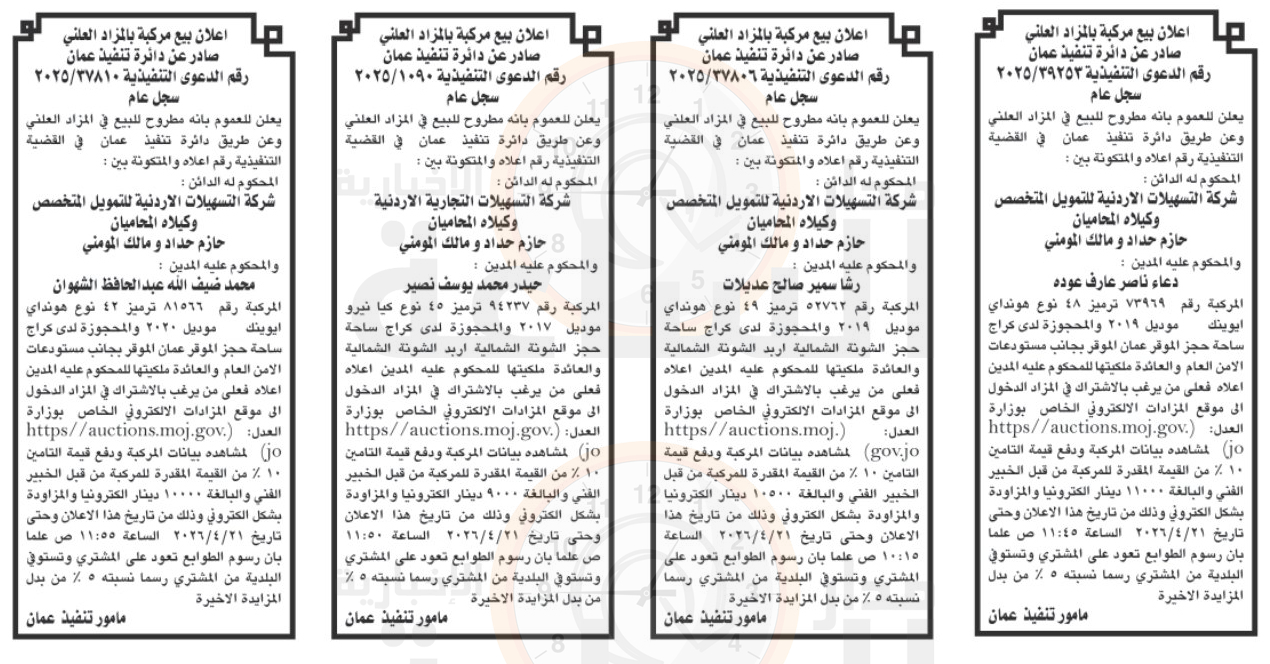 اعلان بيع مركبة بالمزاد العلني
صادر عن دائرة تنفيذ عمان
رقم الدعوى التنفيذية ٢٠٢٥/٣٩٢٥٣
سجل عام
يعلن للعموم بانه مطروح للبيع في المزاد العلني
وعن طريق دائرة تنفيذ عمان في القضية
التنفيذية رقم اعلاه والمتكونة بين :
المحكوم له الدائن :
شركة التسهيلات الاردنية للتمويل المتخصص
وكيلاه المحاميان
حازم حداد و مالك المومني
والمحكوم عليه المدين :
دعاء ناصر عارف عوده
المركبة رقم ٧٣٩٦٩ ترميز ٤٨ نوع هونداي
ايوينك موديل ٢٠١٩ والمحجوزة لدى كراج
ساحة حجز الموقر عمان الموقر بجانب مستودعات
الامن العام والعائدة ملكيتها للمحكوم عليه المدين
اعلاه فعلى من يرغب بالاشتراك في المزاد الدخول
الى موقع المزادات الالكتروني الخاص بوزارة
العدل: (https//auctions.moj.gov.
jo) لمشاهده بيانات المركبة ودفع قيمة التامين
١٠ ٪ من القيمة المقدرة للمركبة من قبل الخبير
الفني والبالغة ١١٠٠٠ دينار الكترونيا والمزاودة
بشكل الكتروني وذلك من تاريخ هذا الاعلان وحتى
تاريخ ٢٠٢٦/٤/٢١ الساعة ١١:٤٥ ص علما
بان رسوم الطوابع تعود على المشتري وتستوفي
البلدية من المشتري رسما نسبته ٥ ٪ من بدل
المزايدة الاخيرة
مامور تنفيذ عمان
اعلان بيع مركبة بالمزاد العلني
صادر عن دائرة تنفيذ عمان
رقم الدعوى التنفيذية ٢٠٢٥/٣٧٨٠٦
سجل عام
يعلن للعموم بانه مطروح للبيع في المزاد العلني
وعن طريق دائرة تنفيذ عمان في القضية
التنفيذية رقم اعلاه والمتكونة بين :
المحكوم له الدائن :
شركة التسهيلات الاردنية للتمويل المتخصص
وكيلاه المحاميان
حازم حداد و مالك المومني
والمحكوم عليه المدين :
رشا سمير صالح عديلات
المركبة رقم ٥٢٧٦٢ ترميز ٤٩ نوع هونداي
موديل ٢٠١٩ والمحجوزة لدى كراج ساحة
حجز الشونة الشمالية اربد الشونة الشمالية
والعائدة ملكيتها للمحكوم عليه المدين اعلاه
فعلى من يرغب بالاشتراك في المزاد الدخول
الى موقع المزادات الالكتروني الخاص بوزارة
العدل: (https//auctions.moj.
gov.jo) لمشاهده بيانات المركبة ودفع قيمة
التامين ١٠ ٪ من القيمة المقدرة للمركبة من قبل
الخبير الفني والبالغة ١٠٥٠٠ دينار الكترونيا
والمزاودة بشكل الكتروني وذلك من تاريخ هذا
الاعلان وحتى تاريخ ٢٠٢٦/٤/٢١ الساعة
١٠:١٥ ص علما بان رسوم الطوابع تعود على
المشتري وتستوفي البلدية من المشتري رسما
نسبته ٥ ٪ من بدل المزايدة الاخيرة
مامور تنفيذ عمان
اعلان بيع مركبة بالمزاد العلني
صادر عن دائرة تنفيذ عمان
رقم الدعوى التنفيذية ٢٠٢٥/١٠٩٠
سجل عام
يعلن للعموم بانه مطروح للبيع في المزاد العلني
وعن طريق دائرة تنفيذ عمان في القضية
التنفيذية رقم اعلاه والمتكونة بين :
المحكوم له الدائن :
شركة التسهيلات التجارية الاردنية
وكيلاه المحاميان
حازم حداد و مالك المومني
والمحكوم عليه المدين :
حيدر محمد يوسف نصير
المركبة رقم ٩٤٢٣٧ ترميز ٤٥ نوع كيا نيرو
موديل ٢٠١٧ والمحجوزة لدى كراج ساحة
حجز الشونة الشمالية اربد الشونة الشمالية
والعائدة ملكيتها للمحكوم عليه المدين اعلاه
فعلى من يرغب بالاشتراك في المزاد الدخول
الى موقع المزادات الالكتروني الخاص بوزارة
العدل: (https//auctions.moj.gov.
jo) لمشاهده بيانات المركبة ودفع قيمة التامين
١٠ ٪ من القيمة المقدرة للمركبة من قبل الخبير
الفني والبالغة ٩٠٠٠ دينار الكترونيا والمزاودة
بشكل الكتروني وذلك من تاريخ هذا الاعلان
وحتى تاريخ ٢٠٢٦/٤/٢١ الساعة ١١:٥٠
ص علما بان رسوم الطوابع تعود على المشتري
وتستوفي البلدية من المشتري رسما نسبته ٥ ٪
من بدل المزايدة الاخيرة
مامور تنفيذ عمان
اعلان بيع مركبة بالمزاد العلني
صادر عن دائرة تنفيذ عمان
رقم الدعوى التنفيذية ٢٠٢٥/٣٧٨١٠
سجل عام
يعلن للعموم بانه مطروح للبيع في المزاد العلني
وعن طريق دائرة تنفيذ عمان في القضية
التنفيذية رقم اعلاه والمتكونة بين :
المحكوم له الدائن :
شركة التسهيلات الاردنية للتمويل المتخصص
وكيلاه المحاميان
حازم حداد و مالك المومني
والمحكوم عليه المدين :
محمد ضيف الله عبدالحافظ الشهوان
المركبة رقم ٨١٥٦٦ ترميز ٤٢ نوع هونداي
ايوينك موديل ٢٠٢٠ والمحجوزة لدى كراج
ساحة حجز الموقر عمان الموقر بجانب مستودعات
الامن العام والعائدة ملكيتها للمحكوم عليه المدين
اعلاه فعلى من يرغب بالاشتراك في المزاد الدخول
الى موقع المزادات الالكتروني الخاص بوزارة
العدل: (https//auctions.moj.gov.
jo) لمشاهده بيانات المركبة ودفع قيمة التامين
١٠ ٪ من القيمة المقدرة للمركبة من قبل الخبير
الفني والبالغة ١٠٠٠٠ دينار الكترونيا والمزاودة
بشكل الكتروني وذلك من تاريخ هذا الاعلان وحتى
تاريخ ٢٠٢٦/٤/٢١ الساعة ١١:٥٥ ص علما
بان رسوم الطوابع تعود على المشتري وتستوفي
البلدية من المشتري رسما نسبته ٥ ٪ من بدل
المزايدة الاخيرة
مامور تنفيذ عمان